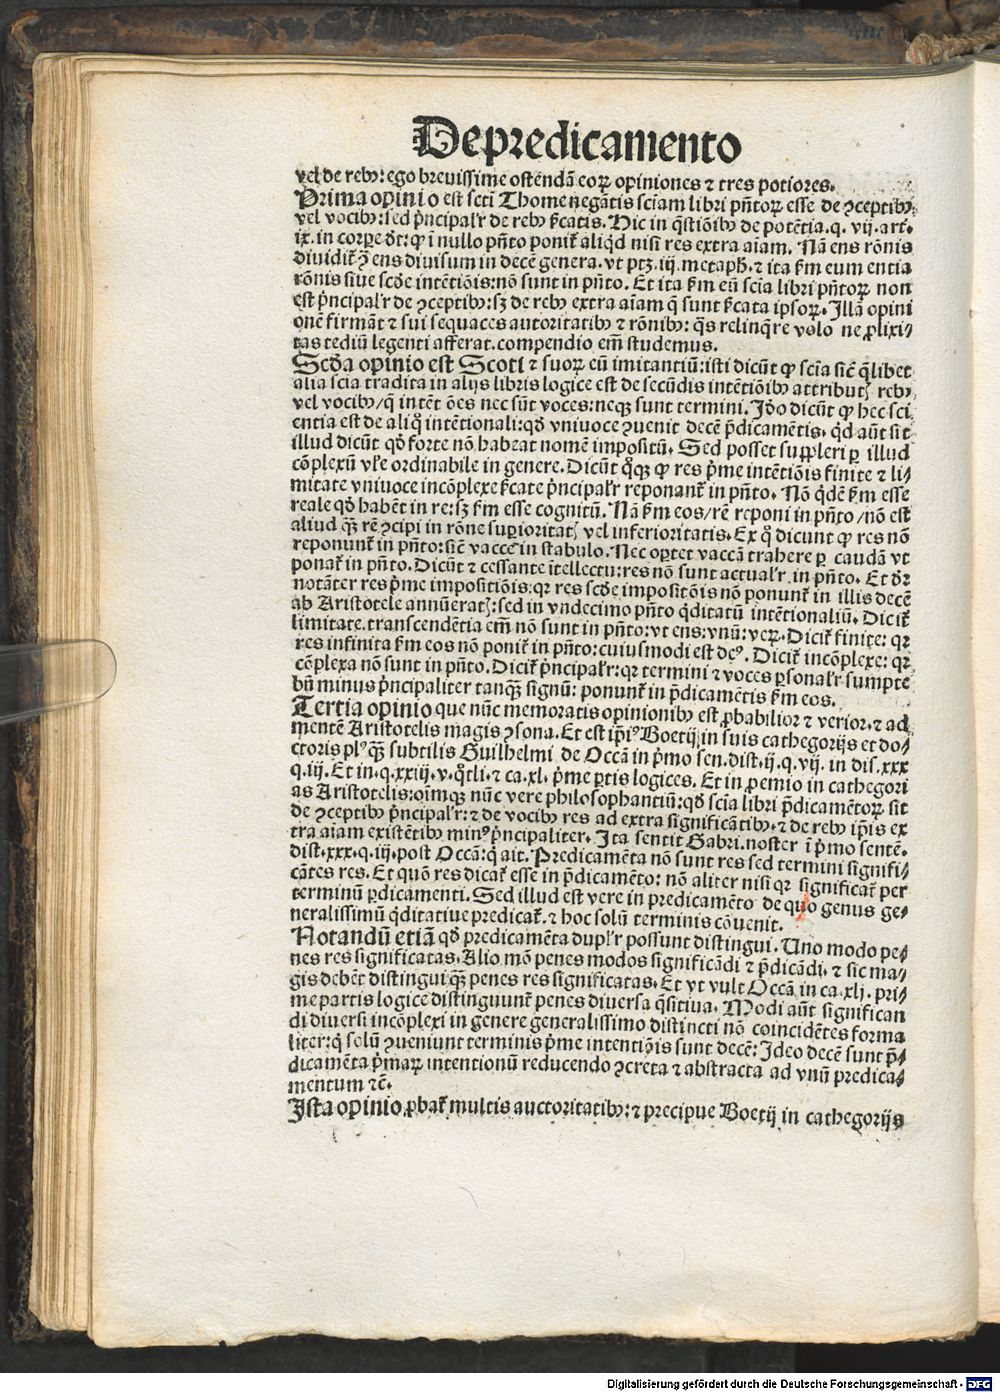 De predicamento
vel de rebꝰ: ego breuissime ostendā eoꝝ opiniones ⁊ tres potiores.
Prima opinio est scti Thome negātis sciam libri pn̄toꝝ esse de ꝯceptibꝰ,
vel vocibꝰ: sed pͥncipalˀr de rebꝰ ſc̄atis. Hic in qͣstiōibꝰ de potētia. q. vij. arti.
ix. in corpꝑe dt̄: ꝙ ī nullo pn̄to ponit̄ aliqͥd nisi res extra aīam. Nā ens rōnis
diuidit̄ ꝯ ens diuisum in decē genera. vt ptꝫ. iiij. metaph̄. ⁊ ita ſm̄ eum entia
rōnis siue scd̄e intētiōis: nō sunt in pn̄to. Et ita ſm̄ eū scia libri pn̄toꝝ non
est pͥncipalˀr de ꝯceptibꝰ: sꝫ de rebꝰ extra aīam q̄ sunt ſc̄ata ipsoꝝ. Illā opini
onē firmāt ⁊ sui sequaces autoritatibꝰ ⁊ rōnibꝰ: qͣs relinqͣre volo ne ꝓlixi⸗
tas tediū legenti afferat. compendio em̄ studemus.
Scd̄a opinio est Scoti ⁊ suoꝝ eū imitantiū: isti dicūt ꝙ scīa sic̄ qͣlibet
alia scia tradita in alijs libris logice est de secūdis intētiōibꝰ attributꝭ rebꝰ,
vel vocibꝰ/ q̄ intēt ōes nec sūt voces: neqꝫ sunt termini. Id̄o dicūt ꝙ hec sci
entia est de aliqͦ intētionali: qd̄ vniuoce ꝯuenit decē p̄dicamētis. qͥd aūt sit
illud dicūt qd̄ forte nō habeat nomē impositū. Sed posset suppleri ꝑ illud
cōplexū vˀle ordinabile in genere. Dicūt qͦqꝫ ꝙ res pͥme intētiōis finite ⁊ li⸗
mitate vniuoce incōplexe ſc̄ate pͥncipalˀr reponant̄ in pn̄to. Nō qͥdē ſm̄ esse
reale qd̄ habēt in re: sꝫ ſm̄ esse cognitū. Nā ſm̄ eos/ rē reponi in pn̄to/ nō est
aliud qͣꝫ rē ꝯcipi in rōne suꝑioritatꝭ vel inferioritatis. Ex qͦ dicunt ꝙ res nō
reponunt̄ in pn̄to: sic̄ vacce in stabulo. Nec oꝑtet vaccā trahere ꝑ caudā vt
ponat̄ in pn̄to. Dicūt ⁊ cessante ītellectu: res nō sunt actualˀr in pn̄to. Et dr̄
notāter res pͥme impositiōis: qꝛ res scd̄e impositōis nō ponunt̄ in illis decē
ab Aristotele annūeratꝭ: sed in vndecimo pn̄to qͥditatū intētionaliū. Dicit̄
limitate. transcendētia em̄ nō sunt in pn̄to: vt ens: vnū: veꝝ. Dicit̄ finite: qꝛ
res infinita ſm̄ eos nō ponit̄ in pn̄to: cuiusmodi est deꝰ. Dicit̄ incōplexe: qꝛ
cōplexa nō sunt in pn̄to. Dicit̄ pͥncipalˀr: qꝛ termini ⁊ voces ꝑsonalˀr sumpte
bn̄ minus pͥncipaliter tanqͣꝫ signū: ponunt̄ in p̄dicamētis ſm̄ eos.
Tertia opinio que nūc memoratis opinionibꝰ est ꝓbabilior ⁊ verior. ⁊ ad
mentē Aristotelis magis ꝯsona. Et est ip̄iꝰ Boetij in suis cathegorijs et do⸗
ctoris plꝰ qͣꝫ subtilis Guilhelmi de Occā in pͥmo sen. dist. ij. q. vij. in dis. xxx
q. iij. Et in. q. xxiij. v. qͦtli. ⁊ ca. xl. pͥme ꝑtis logices. Et in ꝓemio in cathegori
as Aristotelis: oim̄qꝫ nūc vere philosophantiū: qd̄ scīa libri p̄dicamētoꝝ sit
de ꝯceptibꝰ pͥncipalˀr: ⁊ de vocibꝰ res ad extra significātibꝰ. ⁊ de rebꝰ ip̄is ex
tra aīam existētibꝰ minꝰ pͥncipaliter. Ita sentit Gabri. noster ī pͥmo sentē.
dist. xxx. q. iij. post Occā: qͥ ait. Predicamēta nō sunt res sed termini signifi⸗
cātes res. Et quō res dicat̄ esse in p̄dicamēto: nō aliter nisi qꝛ significat̄ per
terminū ꝑdicamenti. Sed illud est vere in predicamēto de quo genus ge⸗
neralissimū qͥditatiue predicat̄. ⁊ hoc solū terminis cōuenit.
Notandū etiā qd̄ predicamēta duplˀr possunt distingui. Uno modo pe⸗
nes res significatas. Alio mō penes modos significādi ⁊ p̄dicādi. ⁊ sic ma⸗
gis debēt distingui qͣꝫ penes res significatas. Et vt vult Occā in ca. xlj. pri⸗
me partis logice distinguunt̄ penes diuersa qͣsitiua. Modi aūt significan
di diuersi incōplexi in genere generalissimo distincti nō coincidētes forma
liter: qͥ solū ꝯueniunt terminis pͥme intentiōis sunt decē: Ideo decē sunt p̄⸗
dicamēta pͥmaꝝ intentionū reducendo ꝯcreta ⁊ abstracta ad vnū predica⸗
mentum ⁊c̄.
Ista opinio ꝓbat̄ multis auctoritatibꝰ: ⁊ precipue Boetij in cathegorijs
Digitalisierung gefördert durch die Deutsche Forschungsgemeinschaft - DFG